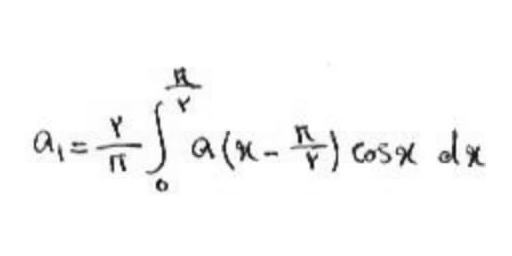 a₁ = \frac{۲}{π} \int_{0}^{\frac{π}{۲}} a(x - \frac{π}{۲}) cosx dx